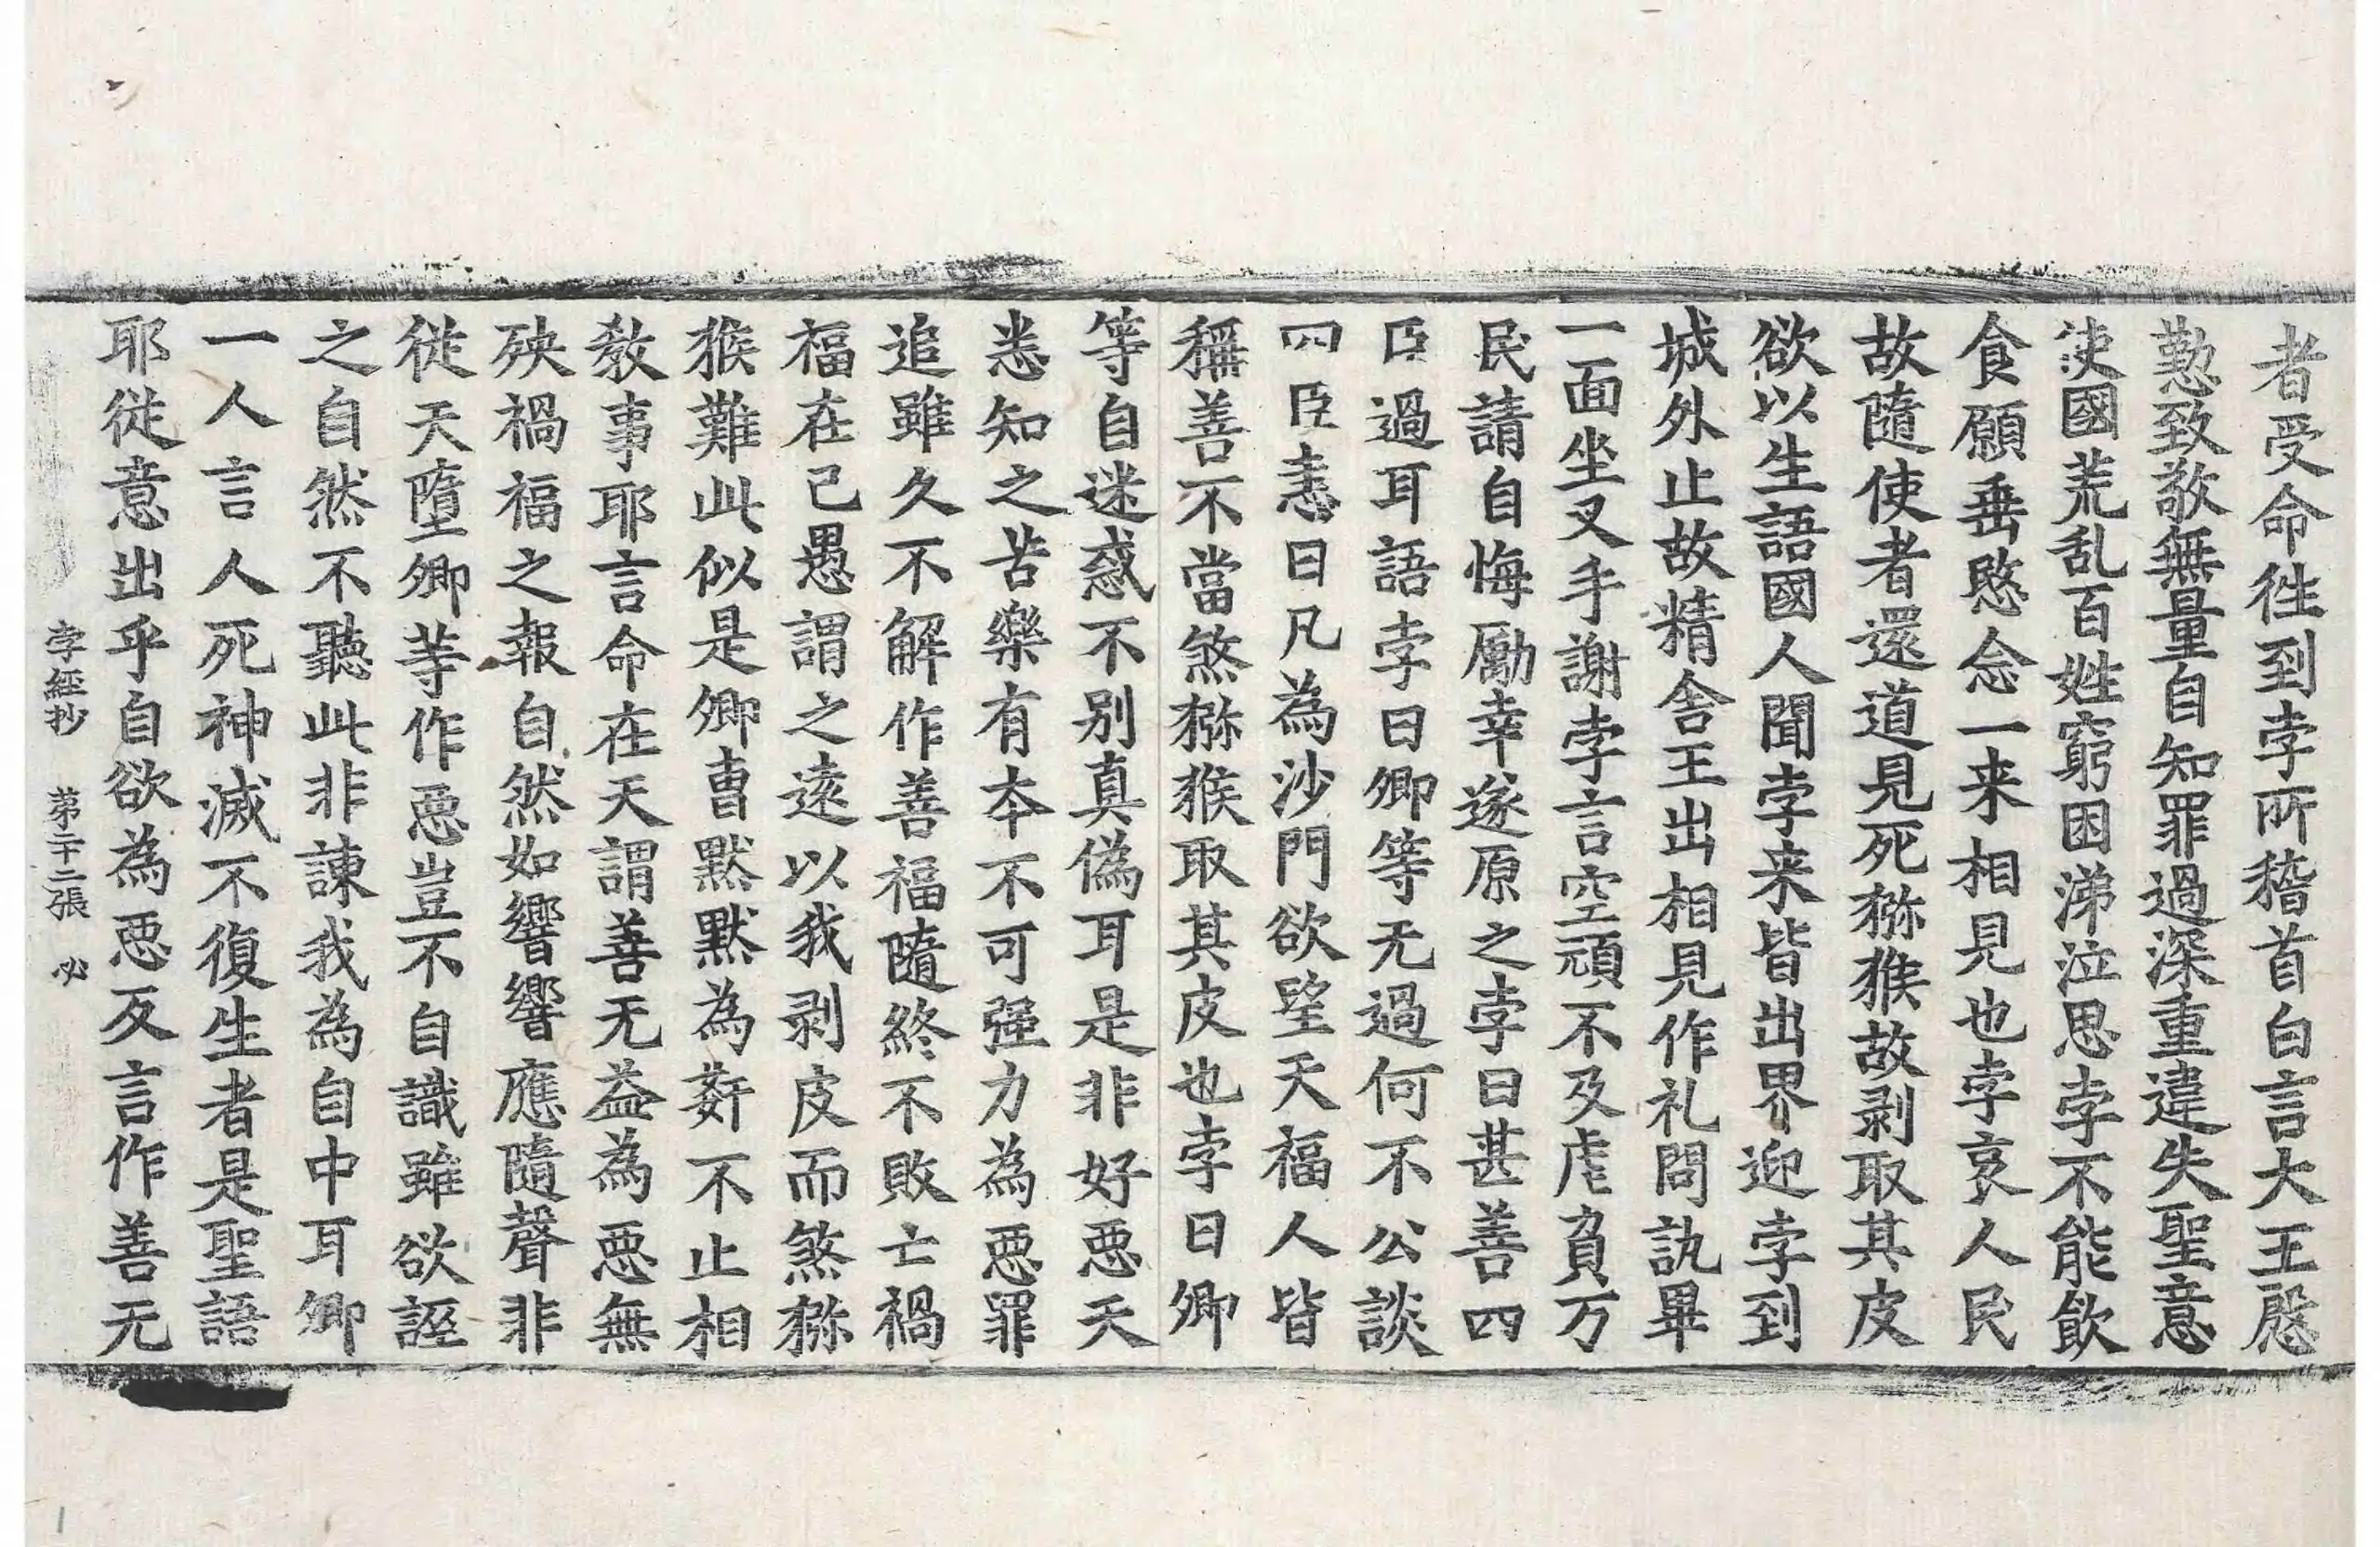 者受命往到孛所稽首白言大王慇
懃致敬無量自知罪過深重違失聖意
使國荒乱百姓窮困涕泣思孛不能飲
食願垂愍念一来相見也孛哀人民
故隨使者還道見死猕猴故剥取其皮
欲以生語國人聞孛来皆出界迎孛到
城外止故精舍王出相見作礼問訊畢
一面坐叉手謝孛言空頑不及虐負万
民請自悔勵幸遂原之孛曰甚善四
臣過耳語孛曰卿等无過何不公談
四臣恚曰凡為沙門欲望天福人皆
稱善不當煞猕猴取其皮也孛曰卿
等自迷惑不別真偽耳是非好惡天
悉知之苦樂有夲不可强力為惡罪
追雖久不解作善福隨終不敗亡禍
福在己愚謂之遠以我剥皮而煞猕
猴難此似是卿曺默默為姧不止相
教事耶言命在天謂善无益為惡無
殃禍福之報自然如響響應隨聲非
從天墮卿等作惡豈不自識雖欲誣
之自然不聽此非諫我為自中耳卿
一人言人死神滅不復生者是聖語
耶從意出乎自欲為惡反言作善无
孛經抄 第二十二張 必